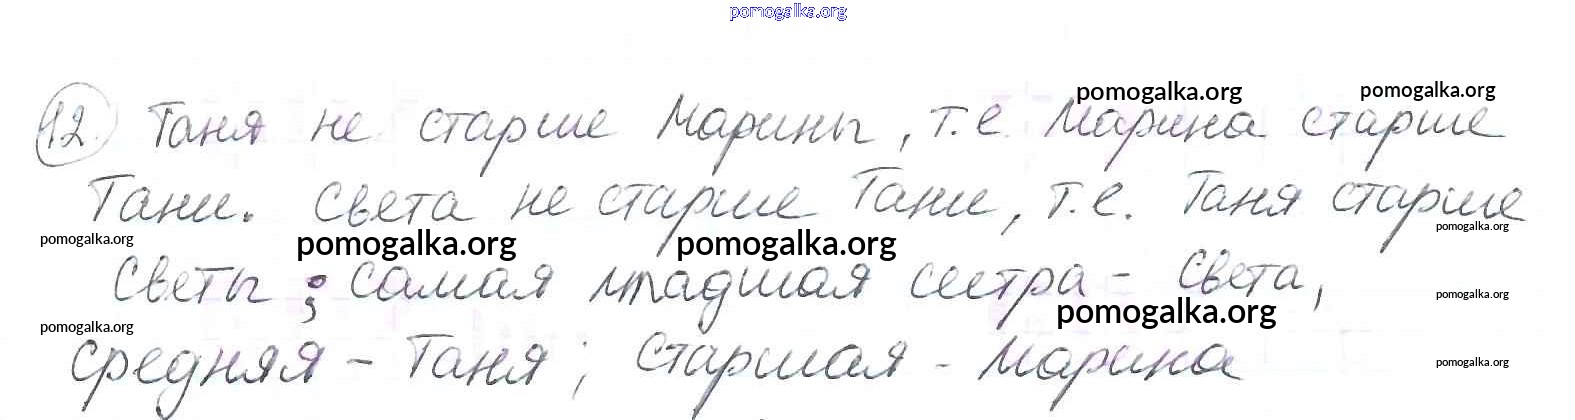 pomogalka.org
pomogalka.org pomogalka.org
12. Таня не старше Марины, т.е. Марина старше
Тани. Света не старше Тани, т.е. Таня старше
pomogalka.org pomogalka.org pomogalka.org pomogalka.org
Светы; самая младшая сестра - Света,
pomogalka.org pomogalka.org
pomogalka.org
средняя - Таня; старшая - Марина
pomogalka.org